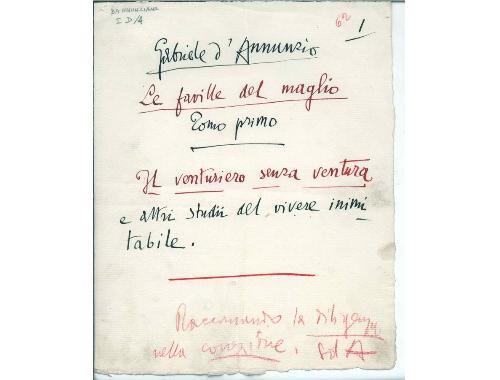 DANNUNZIANA
I D/A
6ª 1
Gabriele d'Annunzio
Le faville del maglio
Tomo primo
Il venturiero senza ventura
e altri studii del vivere inimi
tabile.
Raccomando la diligenza
nella correzione. GdA